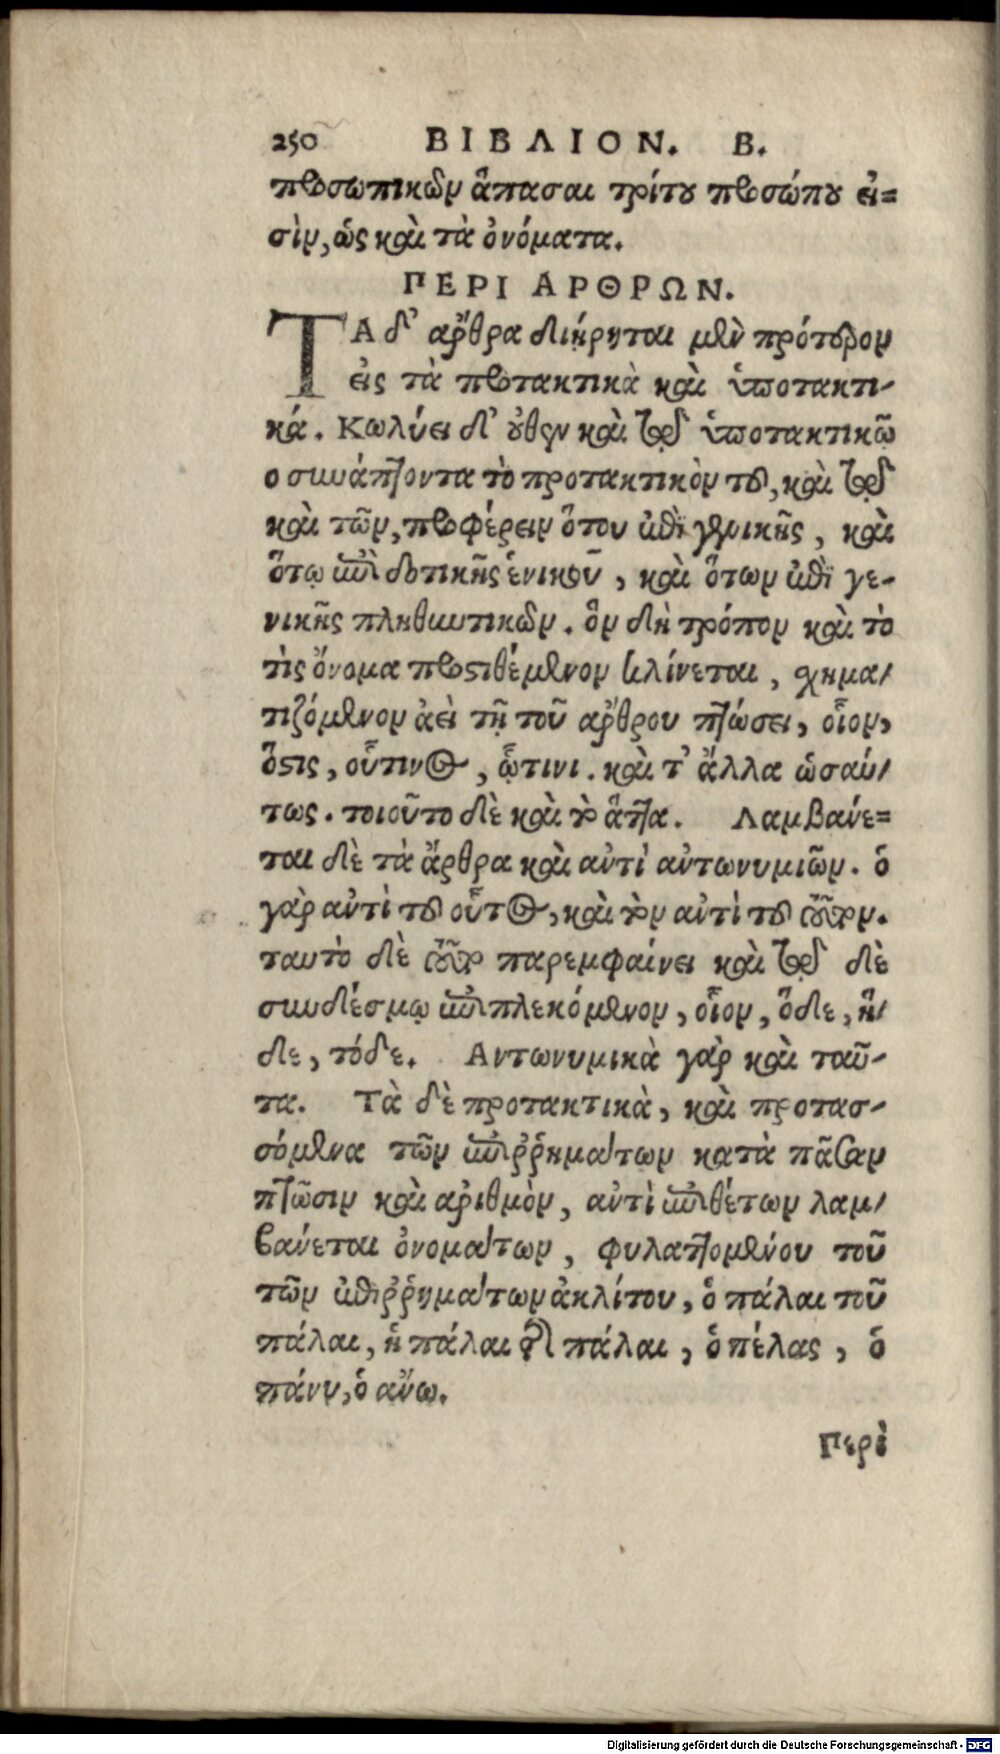 250 ΒΙΒΛΙΟΝ. Β.
προσωπικῶν ἅπασαι τρίτου προσώπου εἰ=
σὶν, ὡς καὶ τὰ ὀνόματα.
ΠΕΡΙ ΑΡΘΡΩΝ.
ΤΑ δ' ἄρθρα διῄρηται μὲν πρότερον
εἰς τὰ προτακτικὰ καὶ ὑποτακτι-
κά. Κωλύει δ' οὐθὲν καὶ τοῦ ὑποτακτικῶ
ο συνάπτοντα τὸ προτακτικὸν του, καὶ
καὶ τῶν, προφέρειν ὅτου ἐπὶ γενικῆς, καὶ
ὅτῳ ἐπὶ δοτικῆς ἑνικοῦ, καὶ ὅτων ἐπὶ γε-
νικῆς πληθυντικῶν. ὃν δὴ τρόπον καὶ τὸ
τὶς ὄνομα προστιθέμενον κλίνεται, χημα/
τιζόμενον ἀεὶ τῇ τοῦ ἄρθρου πτώσει, οἷον,
ὅστις, οὗτινος, ᾧτινι. καὶ τ' ἄλλα ὡσαύ/
τως. τοιοῦτο δὲ καὶ τὸ ἅττα. Λαμβάνε=
ται δὲ τὰ ἄρθρα καὶ αὐτὶ αὐτωνυμιῶν. ὁ
γὰρ αὐτὶ τοῦ οὗτος, καὶ τὸν αὐτὶ τοῦ τοῦτον.
ταυτὸ δὲ τοῦτο παρεμφαίνει καὶ δὲ
συνδέσμῳ ἐπιπλεκόμενον, οἷον, ὅδε, ἥ/
δε, τόδε. Αντωνυμικὰ γὰρ καὶ ταῦ-
τα. Τὰ δὲ προτακτικὰ, καὶ προτασ-
σόμενα τῶν ἐπιῤῥημάτων κατὰ πᾶσαν
πτῶσιν καὶ ἀριθμὸν, αὐτὶ ἐπιθέτων λαμ/
βάνεται ὀνομάτων, φυλαττομένου τοῦ
τῶν ἐπιῤῥημάτων ἀκλίτου, ὁ πάλαι τοῦ
πάλαι, ἡ πάλαι τῆς πάλαι, ὁ πέλας, ὁ
πάνυ, ὁ ἄνω.
Περὶ
Digitalisierung gefördert durch die Deutsche Forschungsgemeinschaft - DFG